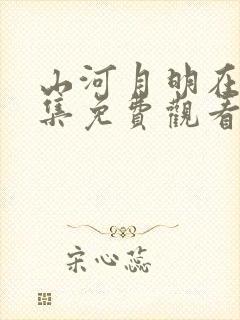 山河月明在
集免費觀看
宋心蕊